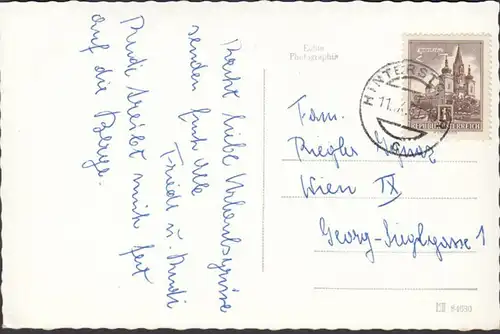 Recht liebe Urlaubsgrüsse
senden Euch Alle
Friedl u. Rudi
Rudi treibt mich fest
auf die Berge.
Echte
Photographie
HINTERST
11.
REPUBLIK ÖSTERREICH
Fam.
Riegler Ignaz
Wien IX
Georg-Sieglgasse 1
64690